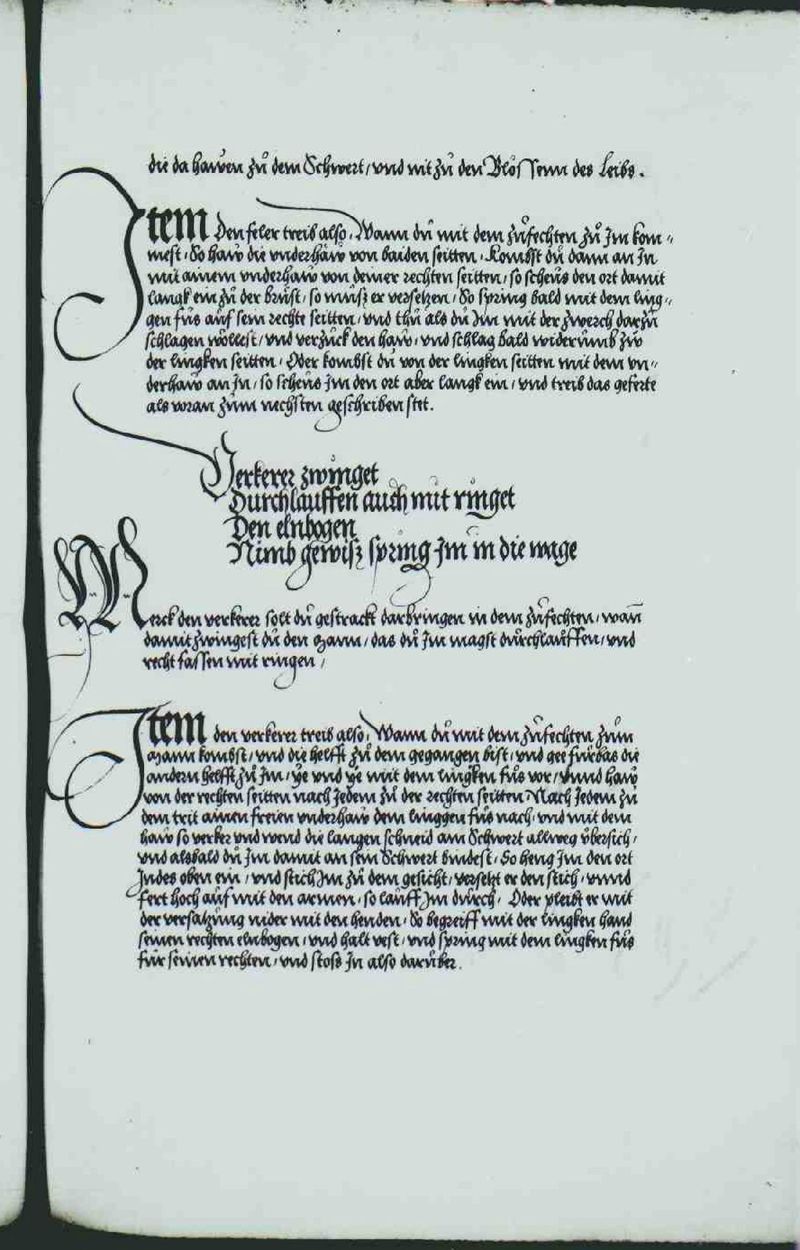 die da hawen zů dem Schwert / vnd nit zů den Blössenn des Leibs .
Item Den feler treib also / Wann dů mit dem zůfechten zů Im kom=
mest / So haw die vnderhäw von baiden seitten / Kombst dů dann an In
mit ainem vnderhaw von deiner rechten seitten / so scheůs den ort damit
langk ein zů der brůst / so můsz er versetzen / So spring bald mit dem ling=
gen fůs aůf sein rechte seitten / vnd thů als dů Im mit der zwerch darzů
schlagen wöllest / vnd verzůck den haw / vnd schlag bald widerůmb zw
der lingken seitten / Oder kombst dů von der lingken seitten mit dem vn=
derhaw an In / so scheůs Im den ort aber langk ein / vnd treib das geferte
als voran zům nechsten geschriben stet .
Verkerer zwinget
Durchlauffen auch mit ringet
Den elnbogen
Nimb gewisz spring Im in die wage
Merck den verkerer solt dů gestrackt darbringen in dem zůfechten / wañ
damit zwingest dů den Mann / das dů Im magst důrchlaůffen / vnd
recht fassen mit ringen /
Item den verkerer treib also / Wann dů mit dem zůfechten zům
Mann kombst / vnd die helfft zů dem gegangen bist / vnd gee fürbas die
andern helfft zů Im / ye vnd ye mit dem lingken fůs vor / vnnd haw
von der rechten seitten nach Jedem zů der rechten seitten Nach Jedem zů
dem trit ainen freien vnderhaw dem linggen fůs nach / vnd mit dem
haw so verker vnd wend die langen schneid am Schwert allweg übersich /
vnd alsbald dů Im damit an sein Schwert bindest / So heng Im den ort
Indes oben ein / vnd stich Im zů dem gesicht / versetzt er den stich / vnnd
fert hoch aůf mit den armen / so laůff Im důrch / Oder pleibt er mit
der versatzůng nider mit den henden / So begreiff mit der lingken hand
seinen rechten elnbogen / vnd halt vest / vnd spring mit dem lingken fůs
für seinen rechten / vnd stosz In also darüber .